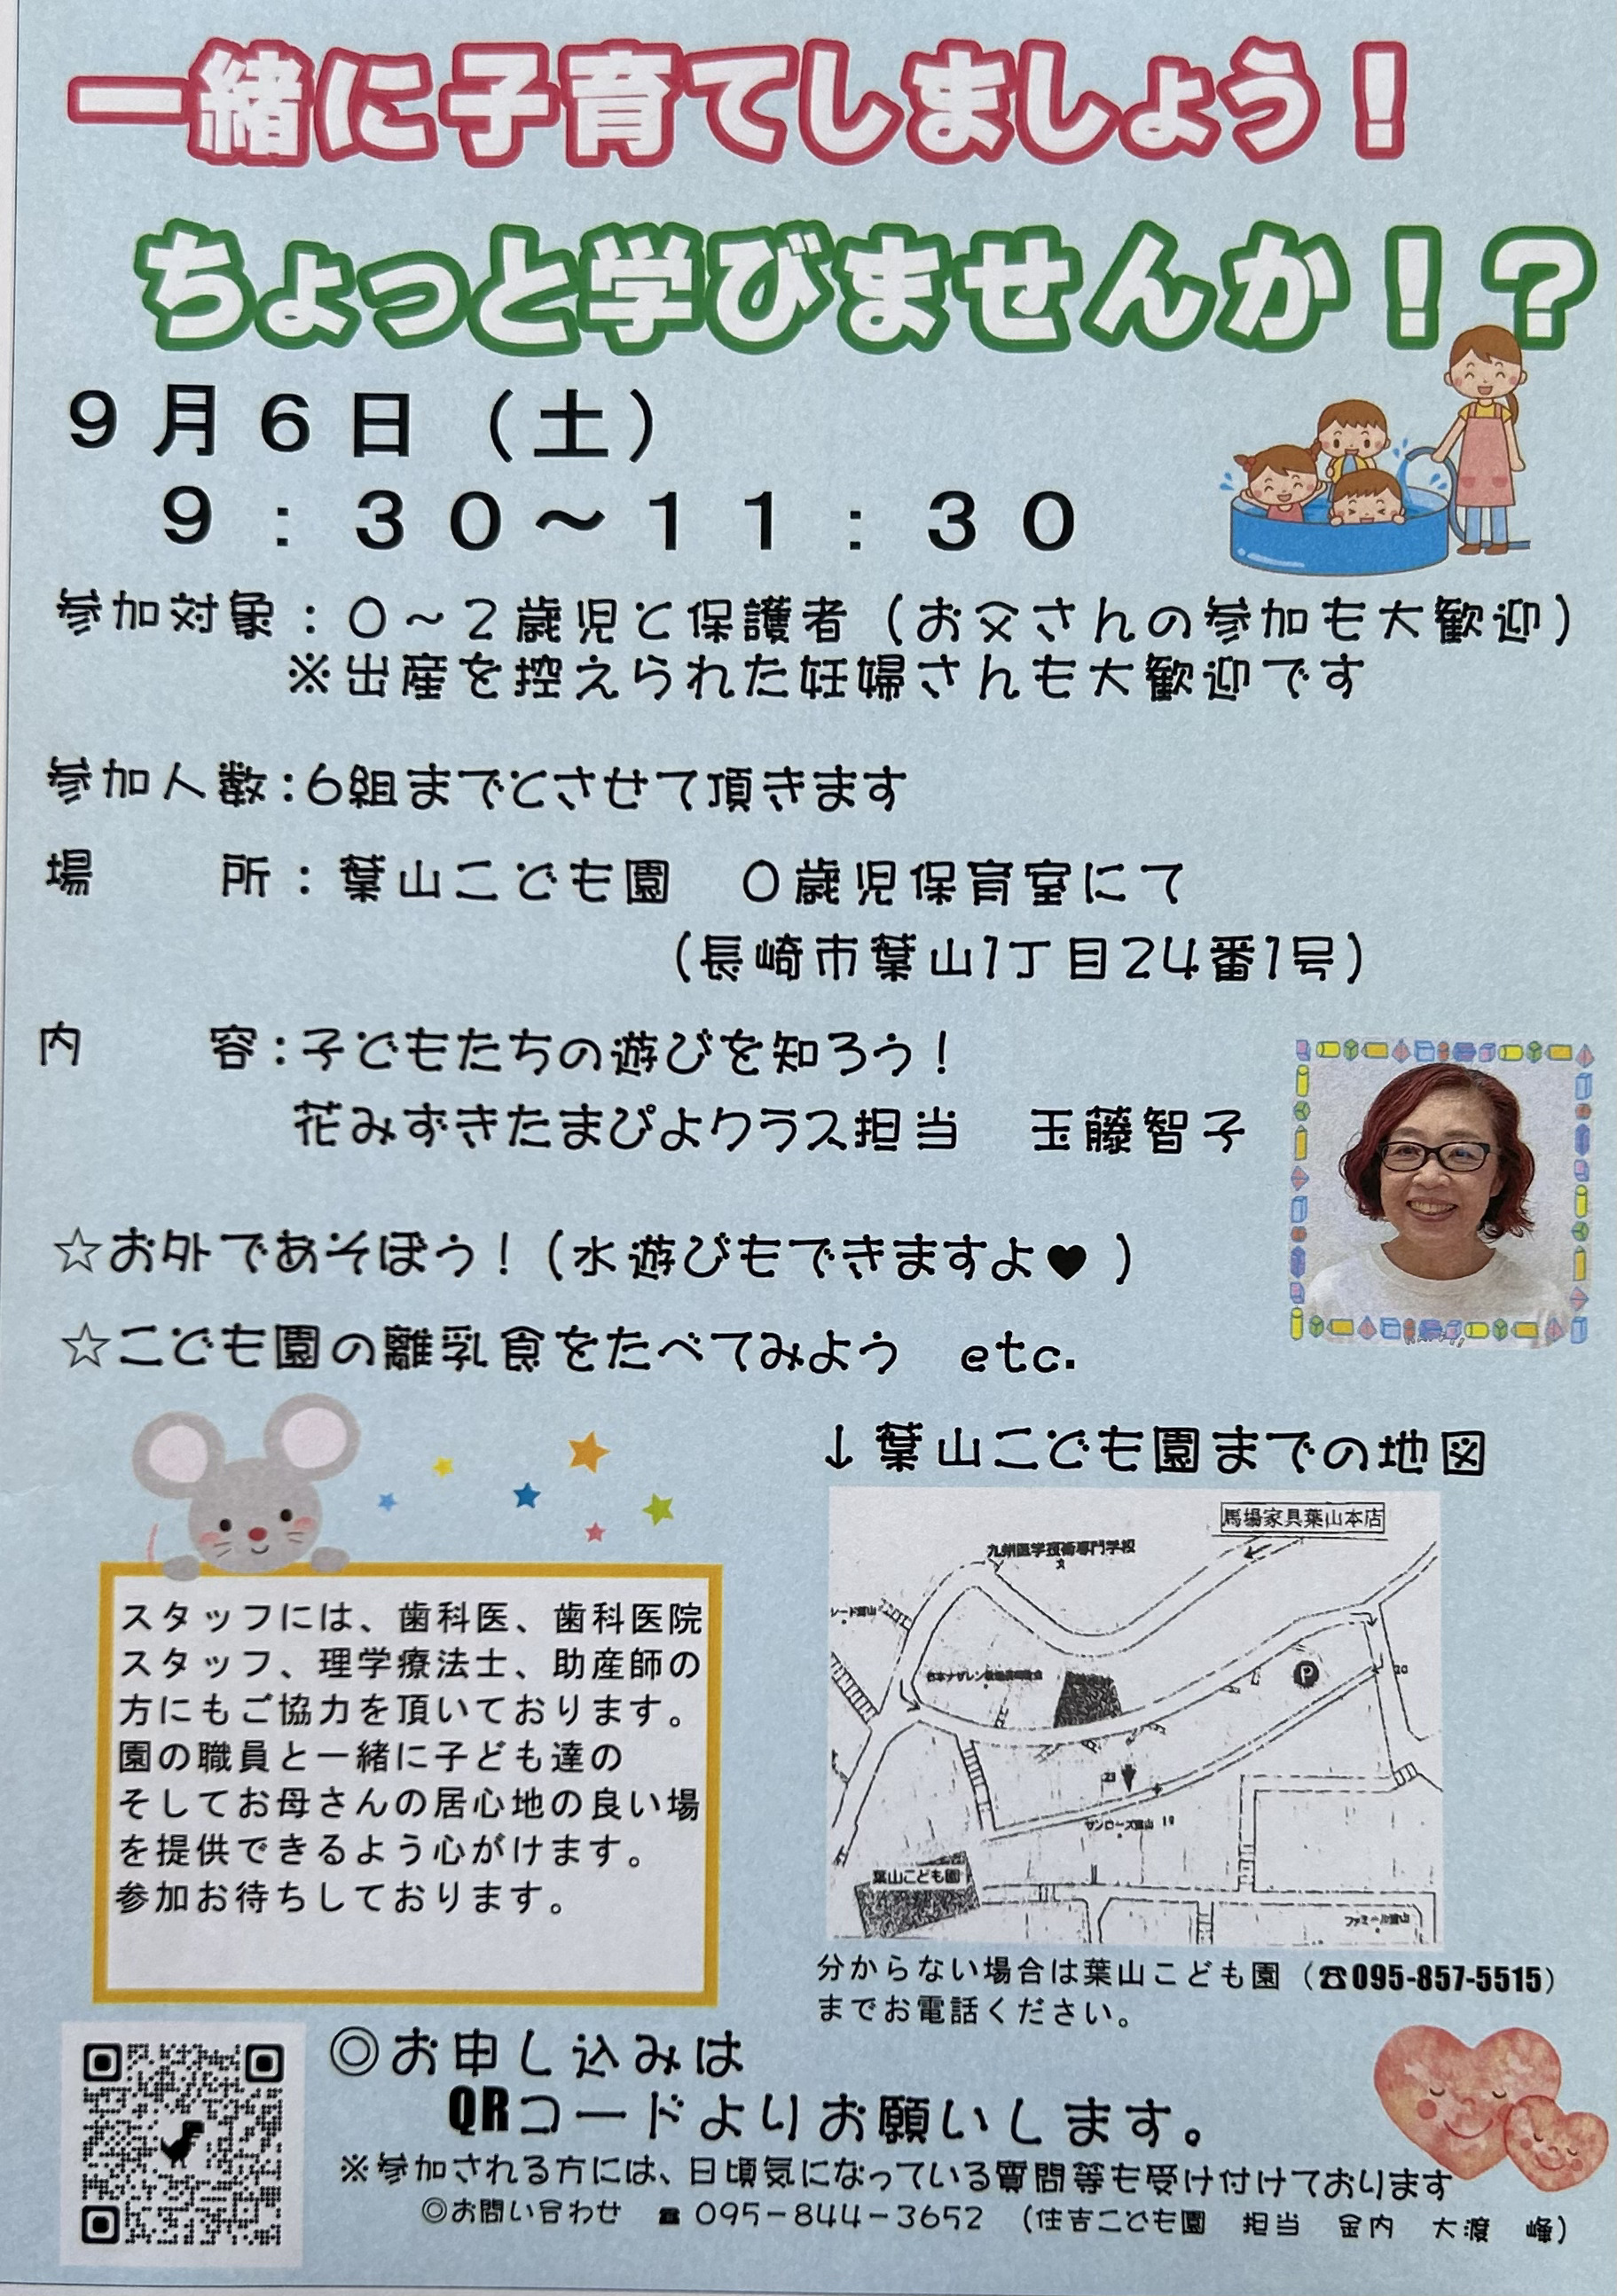 一緒に子育てしましょう！
ちょっと学びませんか！？
９月６日（土）
９：３０～１１：３０
参加対象：０～２歳児と保護者（お父さんの参加も大歓迎）
※出産を控えられた妊婦さんも大歓迎です
参加人数：６組までとさせて頂きます
場　所：葉山こども園　０歳児保育室にて
（長崎市葉山1丁目24番1号）
内　容：子どもたちの遊びを知ろう！
花みずきたまぴよクラス担当　玉藤智子
☆お外であそぼう！（水遊びもできますよ♥）
☆こども園の離乳食をたべてみよう　etc.
↓葉山こども園までの地図
馬場家具葉山本店
九州医学技術専門学校
P
20
23
サンローズ葉山 19
葉山こども園
ファミール葉山
スタッフには、歯科医、歯科医院
スタッフ、理学療法士、助産師の
方にもご協力を頂いております。
園の職員と一緒に子ども達の
そしてお母さんの居心地の良い場
を提供できるよう心がけます。
参加お待ちしております。
分からない場合は葉山こども園（☎095-857-5515）
までお電話ください。
◎お申し込みは
QRコードよりお願いします。
※参加される方には、日頃気になっている質問等も受け付けております
◎お問い合わせ　☎ 095-844-3652　（住吉こども園　担当　金内　大渡　峰）